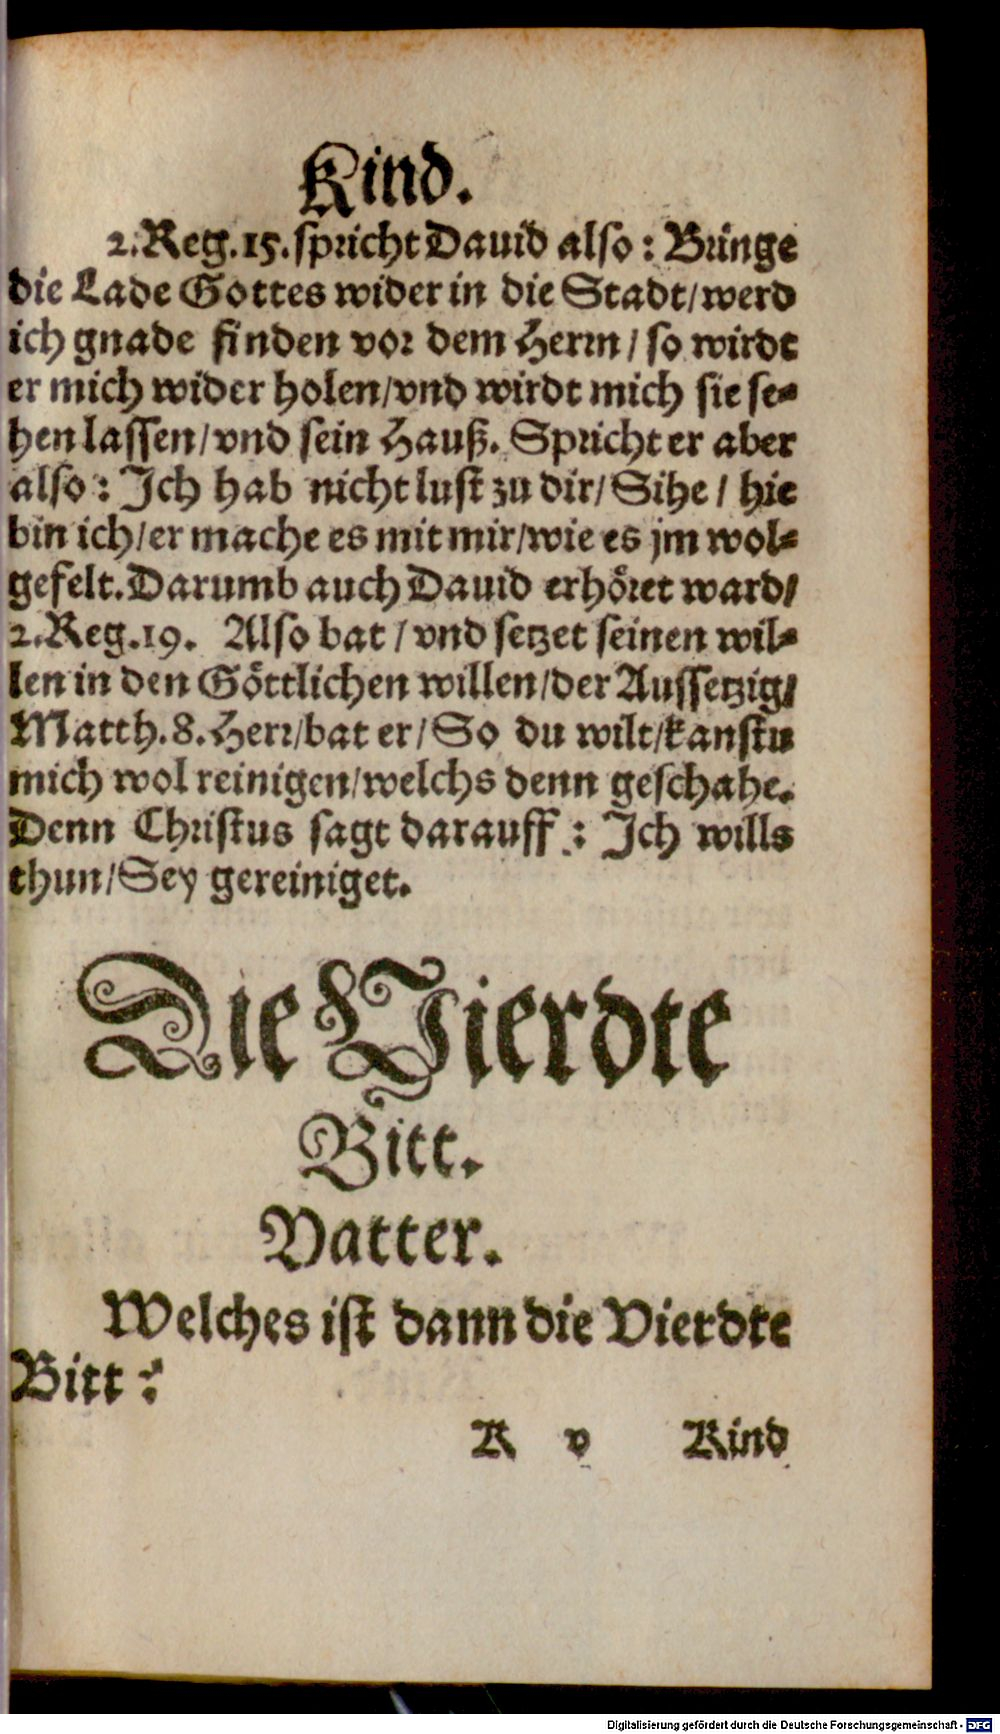 Kind.
2.Reg.15.spricht Dauid also: Bringe
die Lade Gottes wider in die Stadt/werd
ich gnade finden vor dem Herrn/ so wirdt
er mich wider holen/vnd wirdt mich sie se=
hen lassen/vnd sein Hauß. Spricht er aber
also: Ich hab nicht lust zu dir/ Sihe / hie
bin ich/er mache es mit mir/wie es jm wol=
gefelt. Darumb auch Dauid erhöret ward/
2.Reg.19. Also bat / vnd setzet seinen wil=
len in den Göttlichen willen/der Aussetzig/
Matth.8.Herr/bat er/ So du wilt/kanstu
mich wol reinigen/welchs denn geschahe.
Denn Christus sagt darauff : Ich wills
thun/Sey gereiniget.
Die Vierdte
Bitt.
Vatter.
Welches ist dann die Vierdte
Bitt?
K v Kind
Digitalisierung gefördert durch die Deutsche Forschungsgemeinschaft - DFG